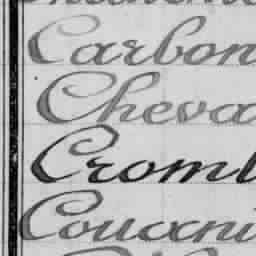 Carbon
Cheva
Croml
Couani